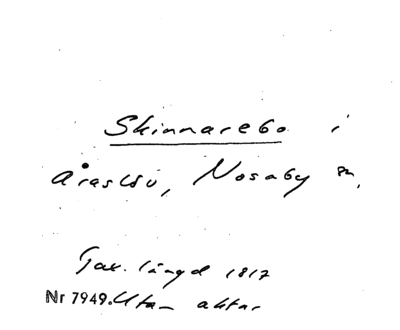 Skinnarebo i
Araslöv, Nosaby sn,
Tax. längd 1817
Nr 7949. Utan aktnr